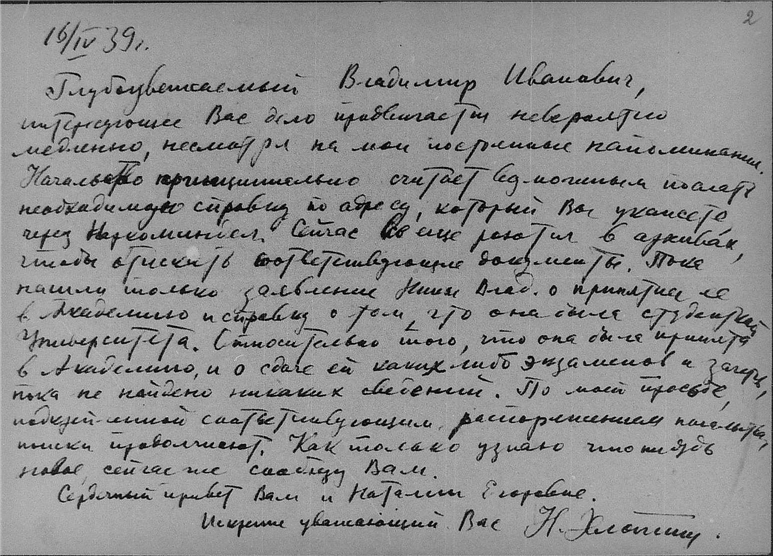 2
16/IV 39 г.
Глубокоуважаемый Владимир Иванович,
интересующее Вас дело продвигается невероятно
медленно, несмотря на мои постоянные напоминания.
Начальство принципиально считает возможным послать
необходимую справку по адресу, который Вы укажете,
через Наркоминдел. Сейчас все еще роются в архивах,
чтобы отыскать соответствующие документы. Пока
нашли только заявление Нины Влад. о принятии ее
в Академию и справку о том, что она была студенткой
Университета. Относительно того, что она была принята
в Академию, и о сдаче ей каких либо экзаменов и зачетов,
пока не найдено никаких сведений. По моей просьбе,
подкрепленной соответствующим распоряжением начальства,
поиски продолжают. Как только узнаю что нибудь
новое, сейчас же сообщу Вам.
Сердечный привет Вам и Наталии Егоровне.
Искренне уважающий Вас Н. Хлопин.